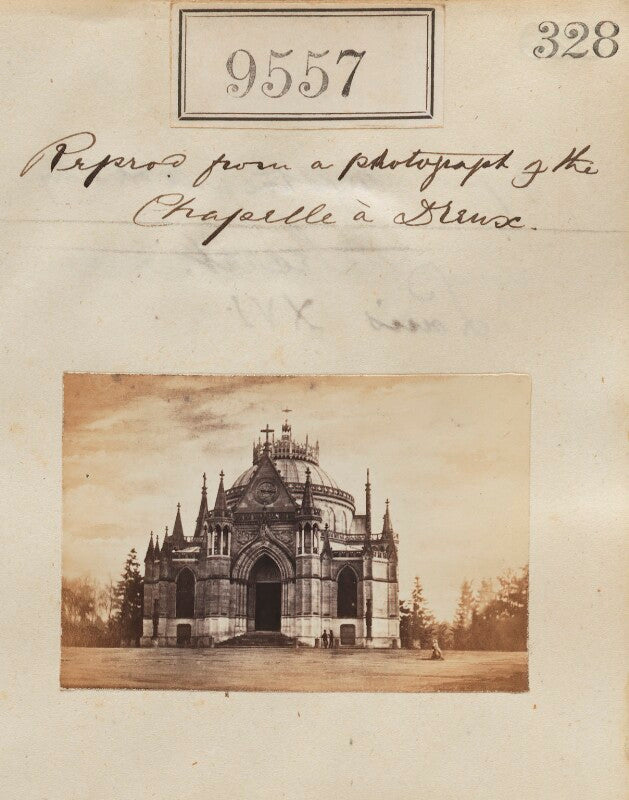 9557
328
Reprod from a photograph of the
Chapelle à Dreux.
Louis XVI